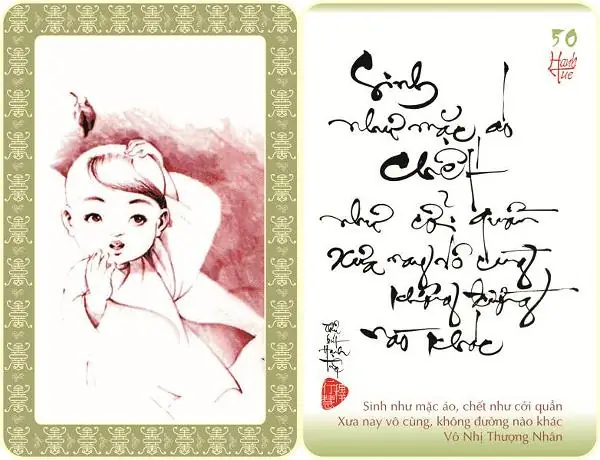 50
Hạnh
Tuệ
Sinh
như mặc áo
Chết
như cởi quần
Xưa nay vô cùng
không đường
nào khác
Sinh như mặc áo, chết như cởi quần
Xưa nay vô cùng, không đường nào khác
Vô Nhị Thượng Nhân